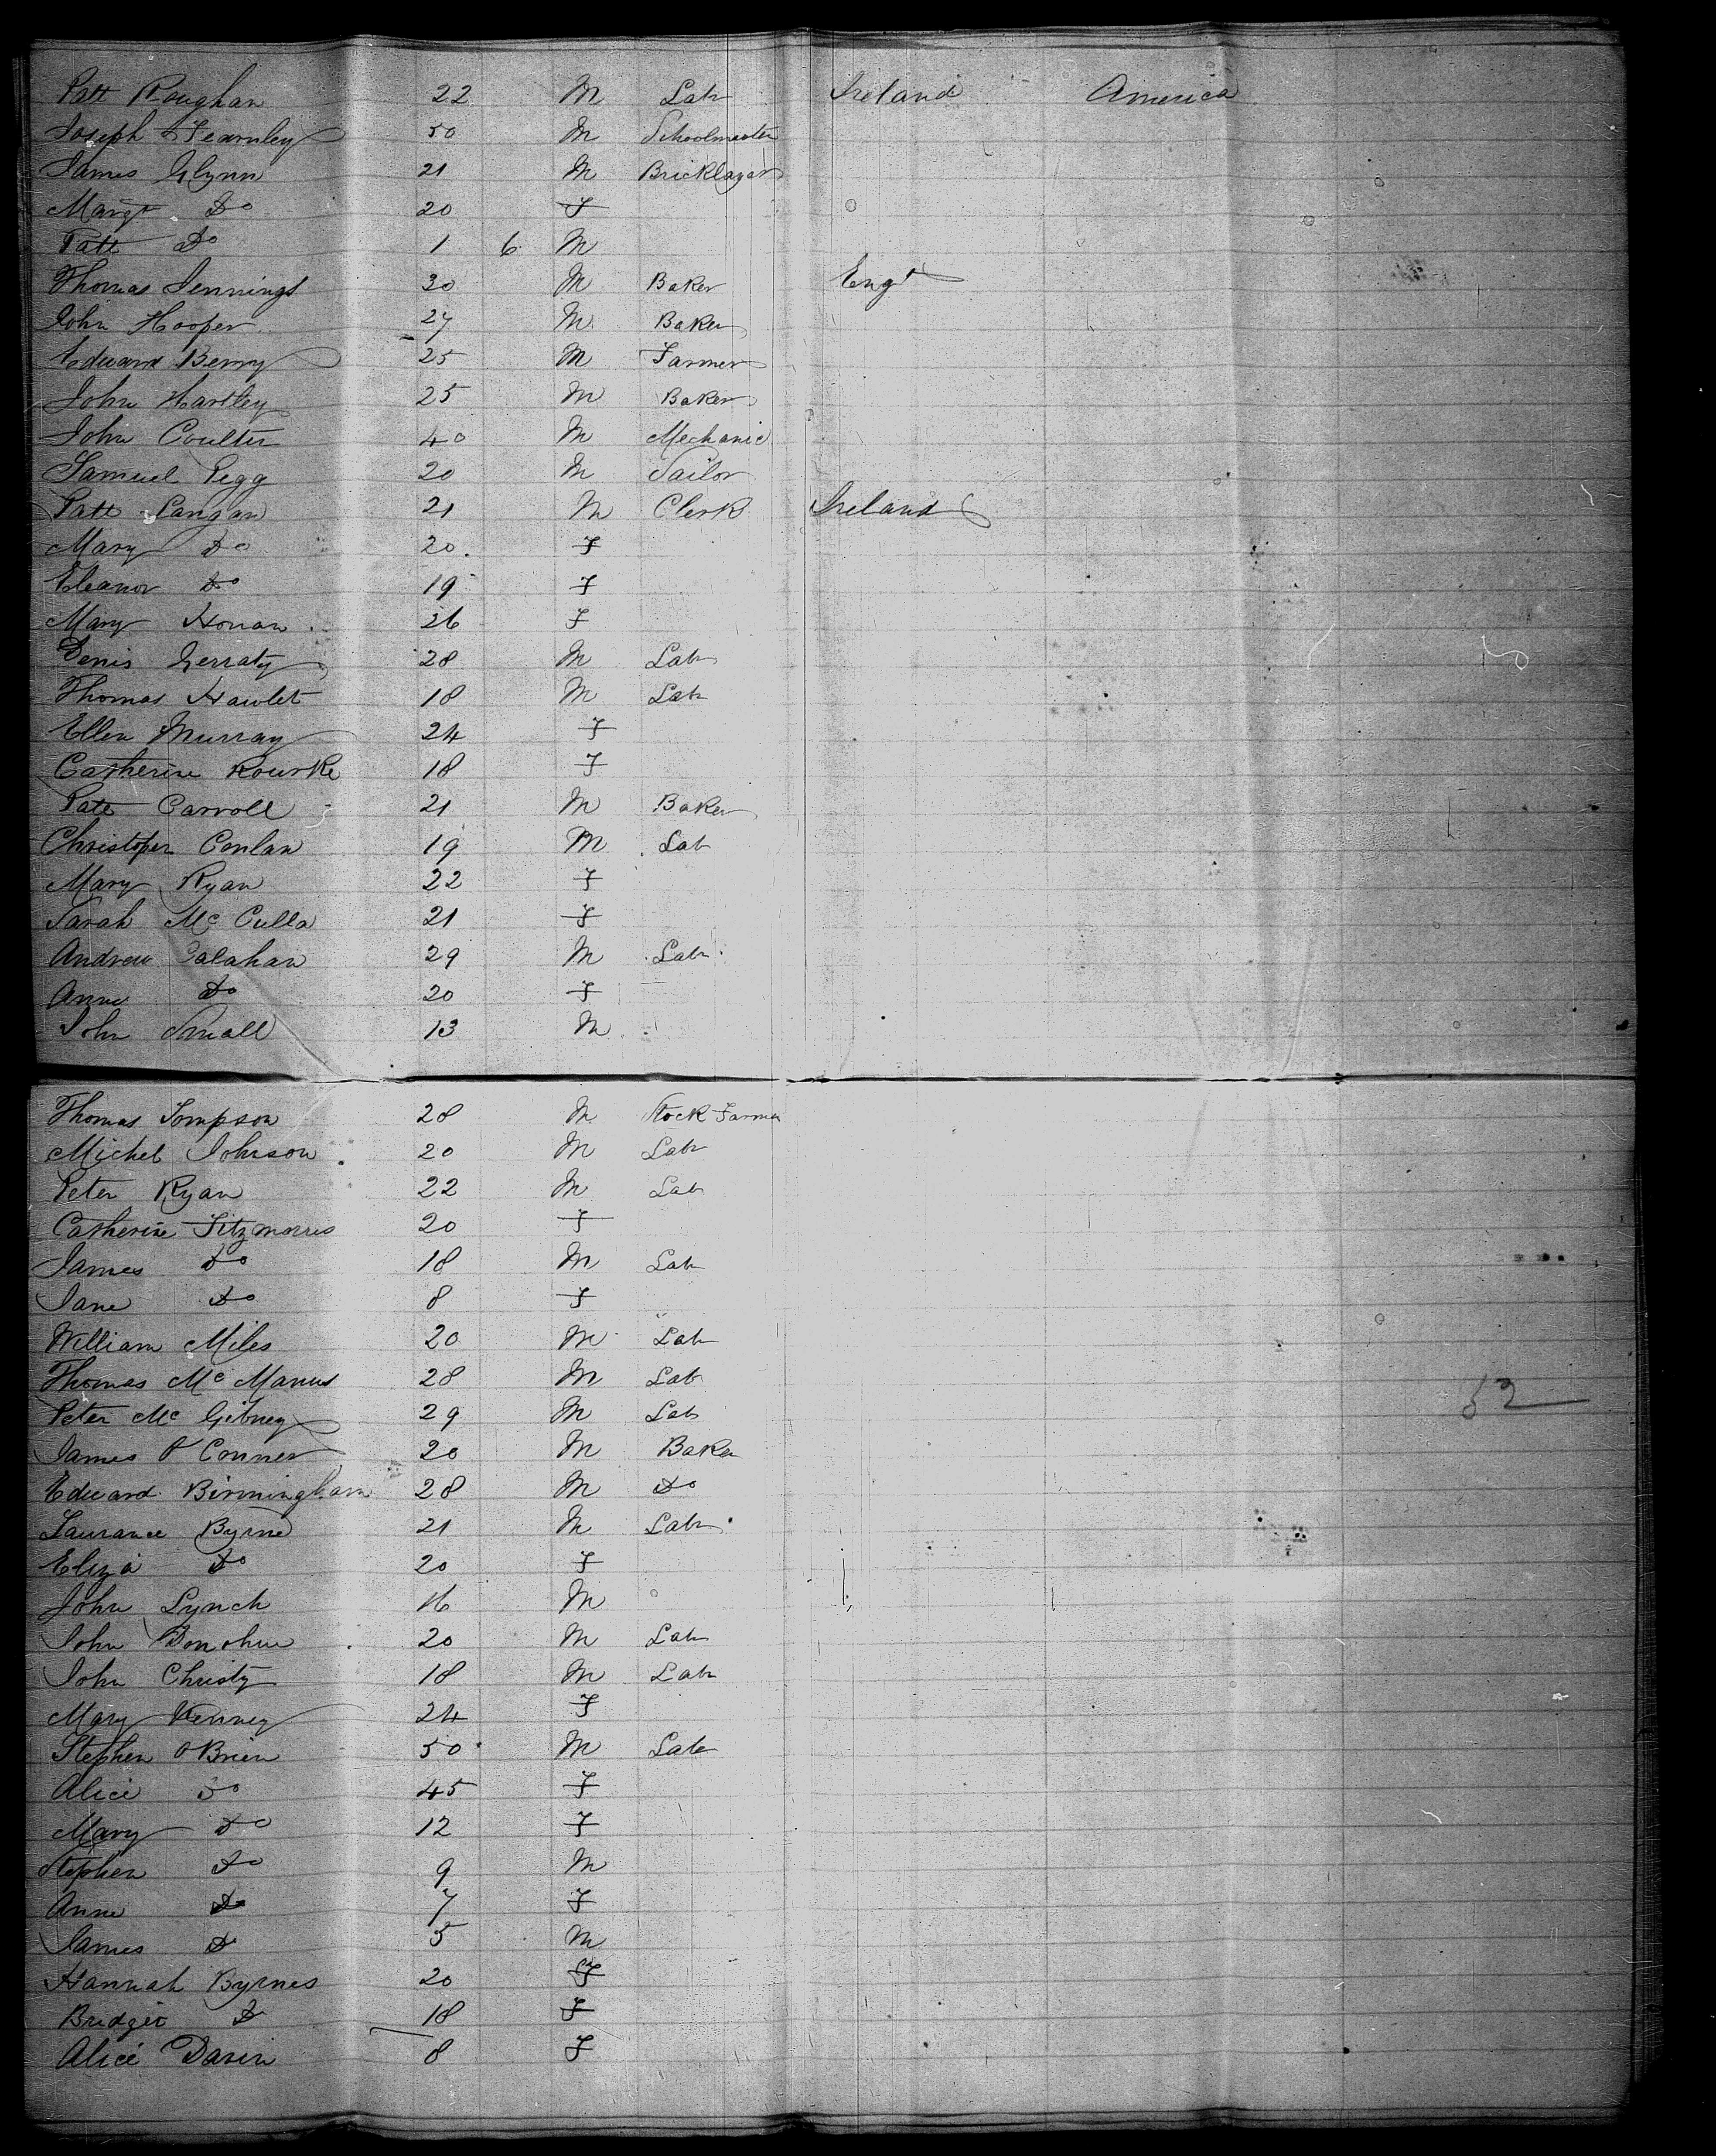 Patt Roughan 22 M Labr Ireland America
Joseph Fearnley 50 M Schoolmaster
James Glynn 21 M Bricklayer
Margt Do 20 F
Patt Do 1 6 M
Thomas Jennings 30 M Baker Engd
John Hooper 27 M Baker
Edward Berry 25 M Farmer
John Hartley 25 M Baker
John Coulter 40 M Mechanic
Samuel Pegg 20 M Sailor
Patt Langan 21 M Clerk Ireland
Mary Do 20 F
Eleanor Do 19 F
Mary Honan 26 F
Denis Gerraty 28 M Labr
Thomas Hawlet 18 M Labr
Ellen Murray 24 F
Catherine Rourke 18 F
Patt Carroll 21 M Baker
Christoper Conlan 19 M Lab
Mary Ryan 22 F
Sarah Mc Culla 21 F
Andrew Calahan 29 M Labr
Anne Do 20 F
John Small 13 M
Thomas Tompson 28 M Stock Farmer
Michel Johnson 20 M Labr
Peter Ryan 22 M Lab
Catherine Fitzmorris 20 F
James Do 18 M Labr
Jane Do 8 F
William Miles 20 M Labr
Thomas Mc Manus 28 M Lab
Peter Mc Gibney 29 M Lab
52
James O Conner 20 M Baker
Edward Birmingham 28 M Do
Laurance Byrne 21 M Labr
Eliza Do 20 F
John Lynch 16 M
John Donohue 20 M Labr
John Christy 18 M Labr
Mary Kenney 24 F
Stephen O Brien 50 M Labr
Alice Do 45 F
Mary Do 12 F
Stephen Do 9 M
Anne Do 7 F
James Do 5 M
Hannah Byrnes 20 F
Bridget Do 18 F
Alice Davin 8 F